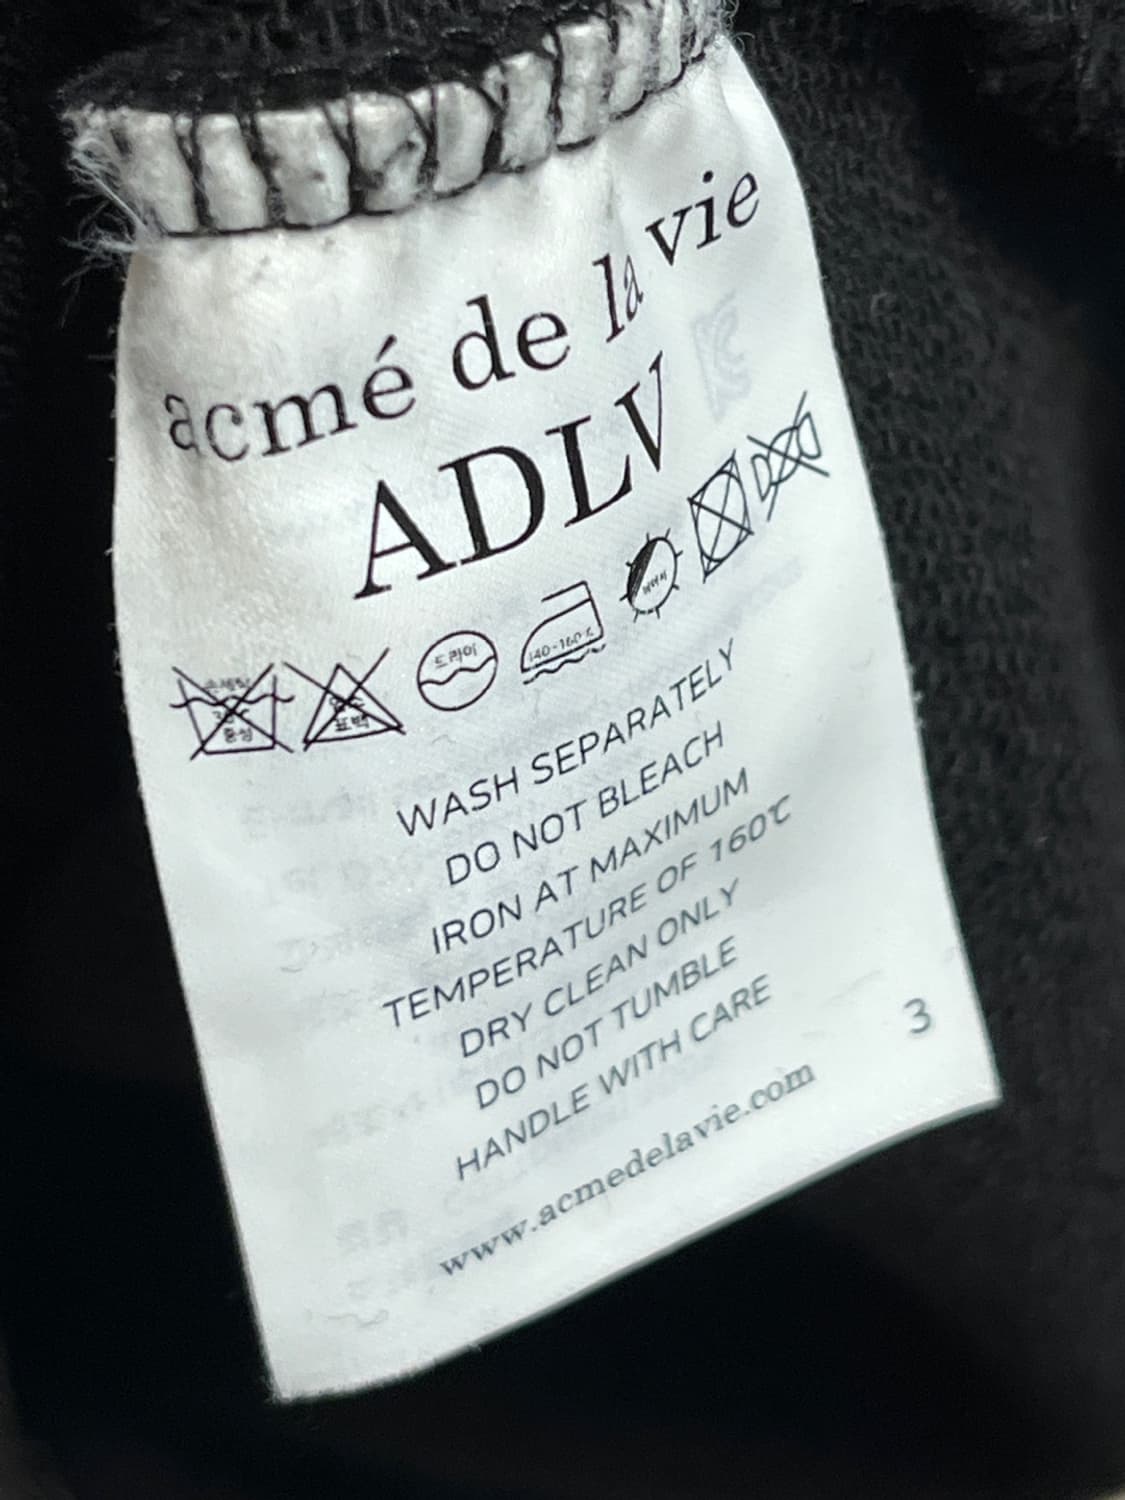 acmé de la vie
ADLV
드라이
140-160℃
표백
중성
WASH SEPARATELY
DO NOT BLEACH
IRON AT MAXIMUM
TEMPERATURE OF 160℃
DRY CLEAN ONLY
DO NOT TUMBLE
HANDLE WITH CARE
3
www.acmedelavie.com